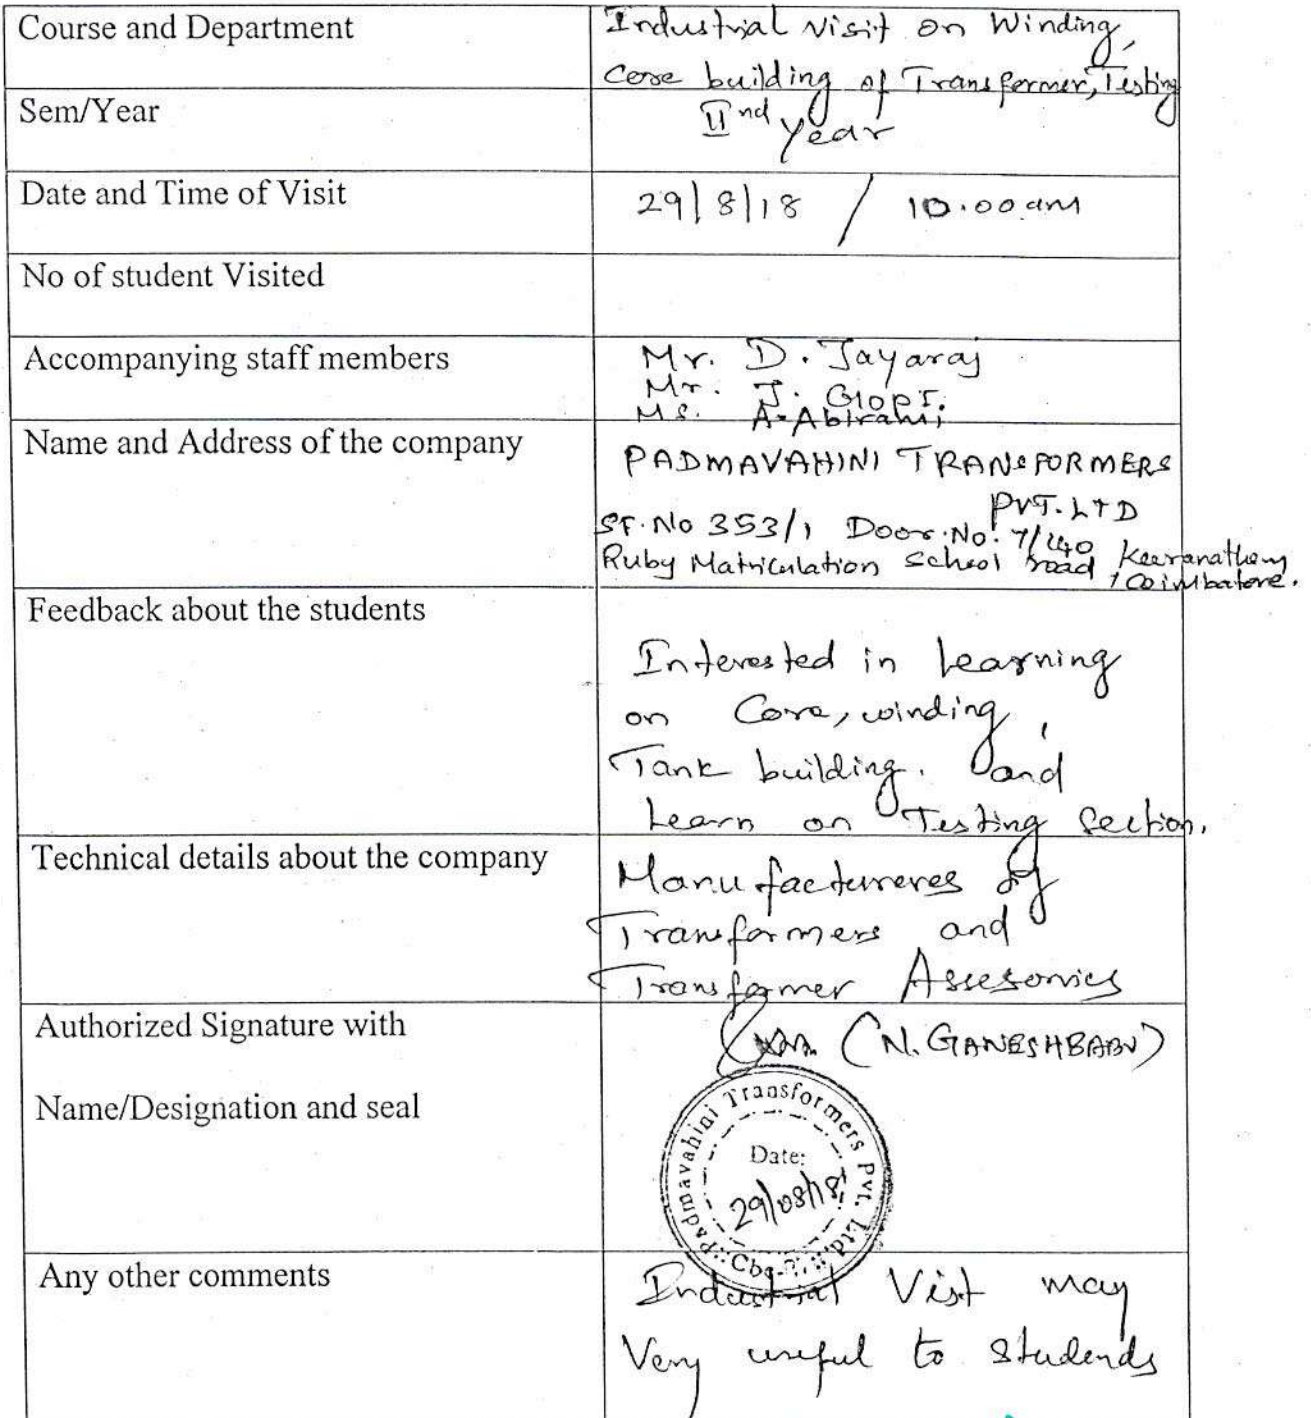 Course and Department
Industrial visit on Winding,
Core building of Transformer, Testing
Sem/Year
IInd year
Date and Time of Visit
29/8/18 / 10.00 am
No of student Visited
Accompanying staff members
Mr. D. Jayaraj
Mr. J. GIOPI.
Ms. A. Abirami
Name and Address of the company
PADMAVAHINI TRANSFORMERS
PVT. LTD
SF. No 353/1 Door. No: 7/240
Ruby Matriculation School road Keeranatham
Coimbatore.
Feedback about the students
Interested in learning
on Core, winding,
Tank building. and
Learn on Testing Section.
Technical details about the company
Manufactureres of
Transformers and
Transformer Assesories
Authorized Signature with
(N. GANESHBABU)
Name/Designation and seal
Padmavahini Transformers Pvt. Ltd.
Date:
29/08/18
Any other comments
Industrial Visit may
Very useful to students